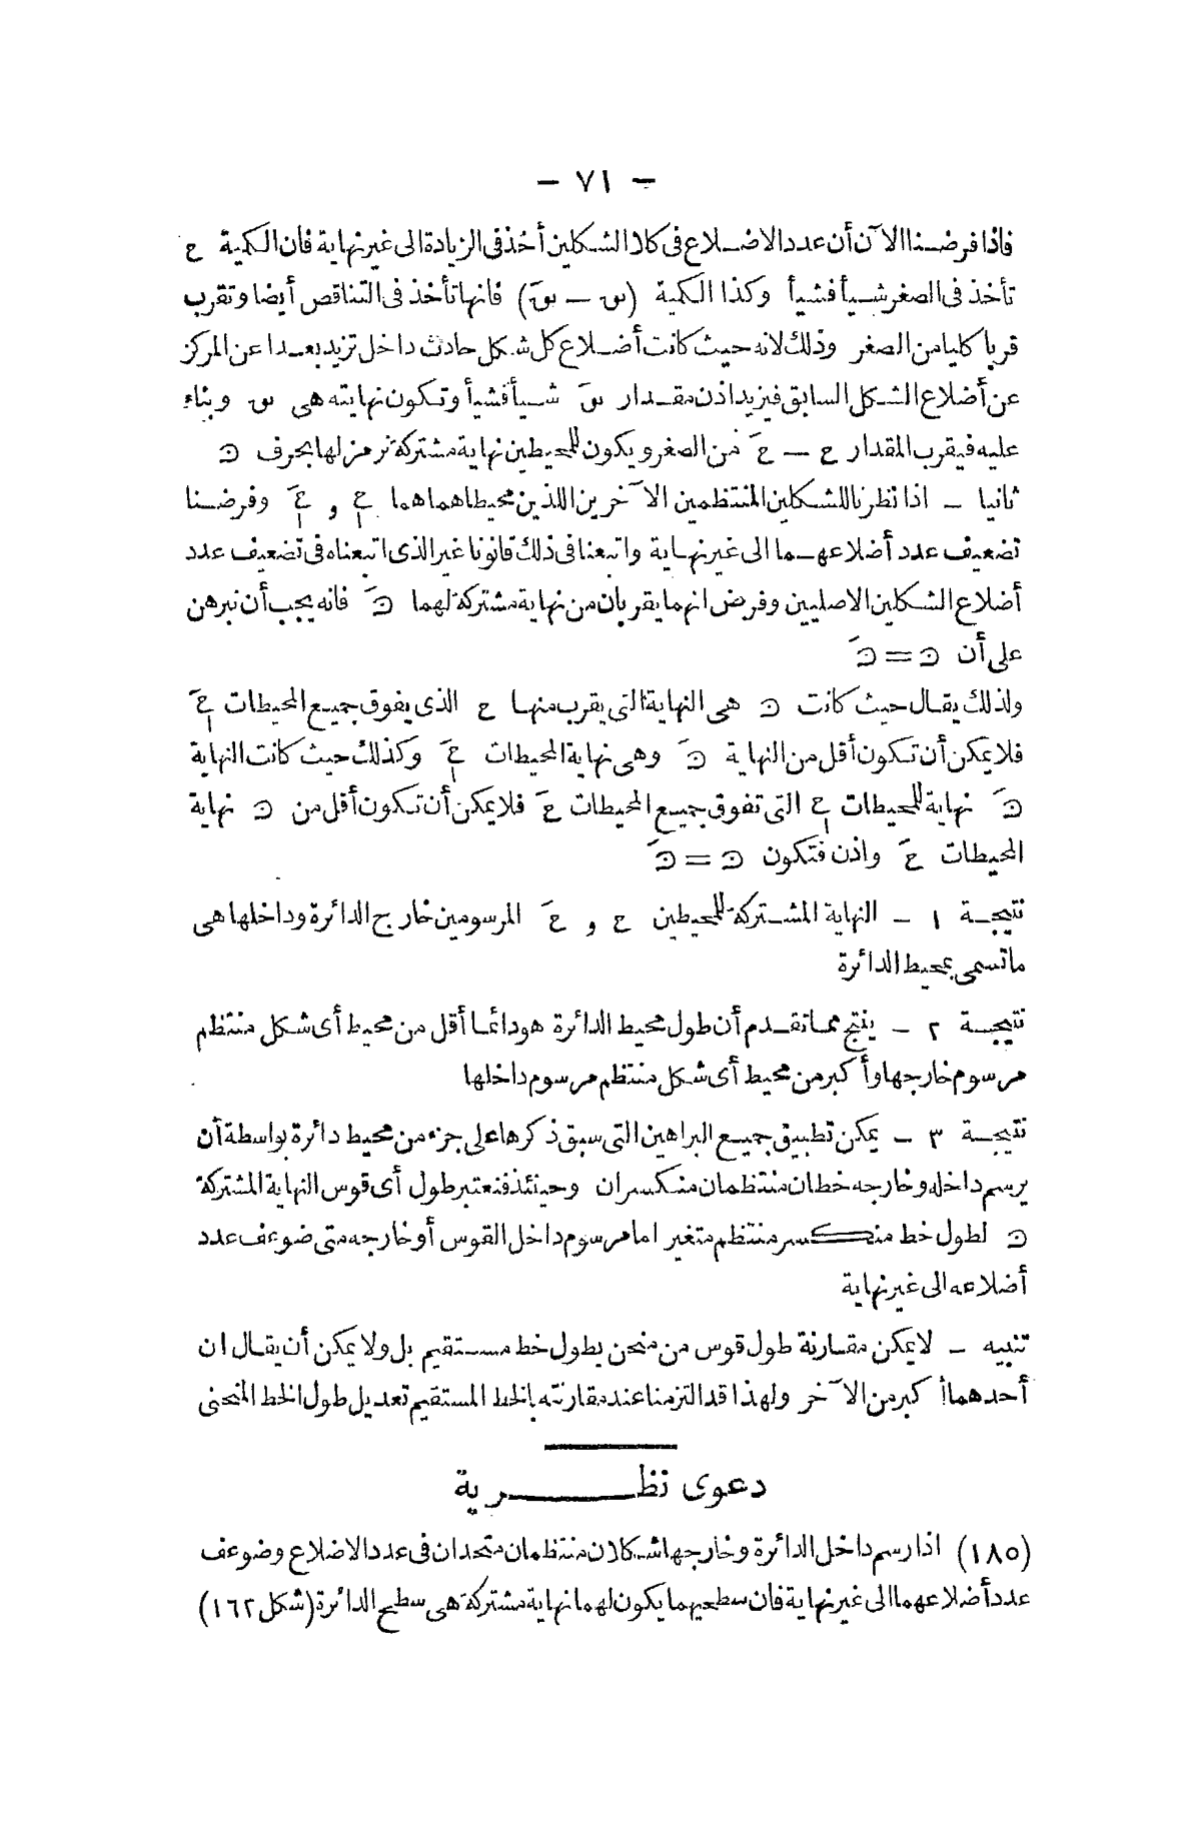 — ٧١ —
فاذا فرضنا الآن أن عدد الاضلاع فى كلا الشكلين أخذ فى الزيادة الى غير نهاية فان الكمية ع
تأخذ فى الصغر شيأ فشيأ وكذا الكمية (س — سَ) فانها تأخذ فى التناقص أيضا وتقرب
قربا كليا من الصفر وذلك لانه حيث كانت أضلاع كل شكل حادث داخل تزيد بعدا عن المركز
عن أضلاع الشكل السابق فيزيد اذن مقدار سَ شيأ فشيأ وتكون نهايته هى س وبناء
عليه فيقرب المقدار ع — عَ من الصفر ويكون للمحيطين نهاية مشتركة نرمز لها بحرف ں
ثانيا — اذا نظرنا للشكلين المنتظمين الآخرين اللذين محيطاهما هما ع١ و عَ١ وفرضنا
تضعيف عدد أضلاعهما الى غير نهاية واتبعنا فى ذلك قانونا غير الذى اتبعناه فى تضعيف عدد
أضلاع الشكلين الاصليين وفرض انهما يقربان من نهاية مشتركة لهما ںَ فانه يجب أن نبرهن
على أن ں = ںَ
ولذلك يقال حيث كانت ں هى النهاية التى يقرب منها ع الذى يفوق جميع المحيطات عَ١
فلا يمكن أن تكون أقل من النهاية ںَ وهى نهاية المحيطات عَ١ وكذلك حيث كانت النهاية
ںَ نهاية للمحيطات ع١ التى تفوق جميع المحيطات عَ فلا يمكن أن تكون أقل من ں نهاية
المحيطات عَ واذن فتكون ں = ںَ
نتيجة ١ — النهاية المشتركة للمحيطين ع و عَ المرسومين خارج الدائرة وداخلها هى
ماتسمى بمحيط الدائرة
نتيجة ٢ — ينتج مما تقدم أن طول محيط الدائرة هو دائما أقل من محيط أى شكل منتظم
مرسوم خارجها وأكبر من محيط أى شكل منتظم مرسوم داخلها
نتيجة ٣ — يمكن تطبيق جميع البراهين التى سبق ذكرها على جزء من محيط دائرة بواسطة أن
يرسم داخله وخارجه خطان منتظمان منكسران وحينئذ فنعتبر طول أى قوس النهاية المشتركة
ں لطول خط منكسر منتظم متغير اما مرسوم داخل القوس أو خارجه متى ضوعف عدد
أضلاعه الى غير نهاية
تنبيه — لا يمكن مقارنة طول قوس من منحن بطول خط مستقيم بل ولا يمكن أن يقال ان
أحدهما أكبر من الآخر ولهذا قد التزمنا عند مقارنته بالخط المستقيم تعديل طول الخط المنحنى
دعوى نظرية
(١٨٥) اذا رسم داخل الدائرة وخارجها شكلان منتظمان متحدان فى عدد الاضلاع وضوعف
عدد أضلاعهما الى غير نهاية فان سطحيهما يكون لهما نهاية مشتركة هى سطح الدائرة (شكل ١٦٢)